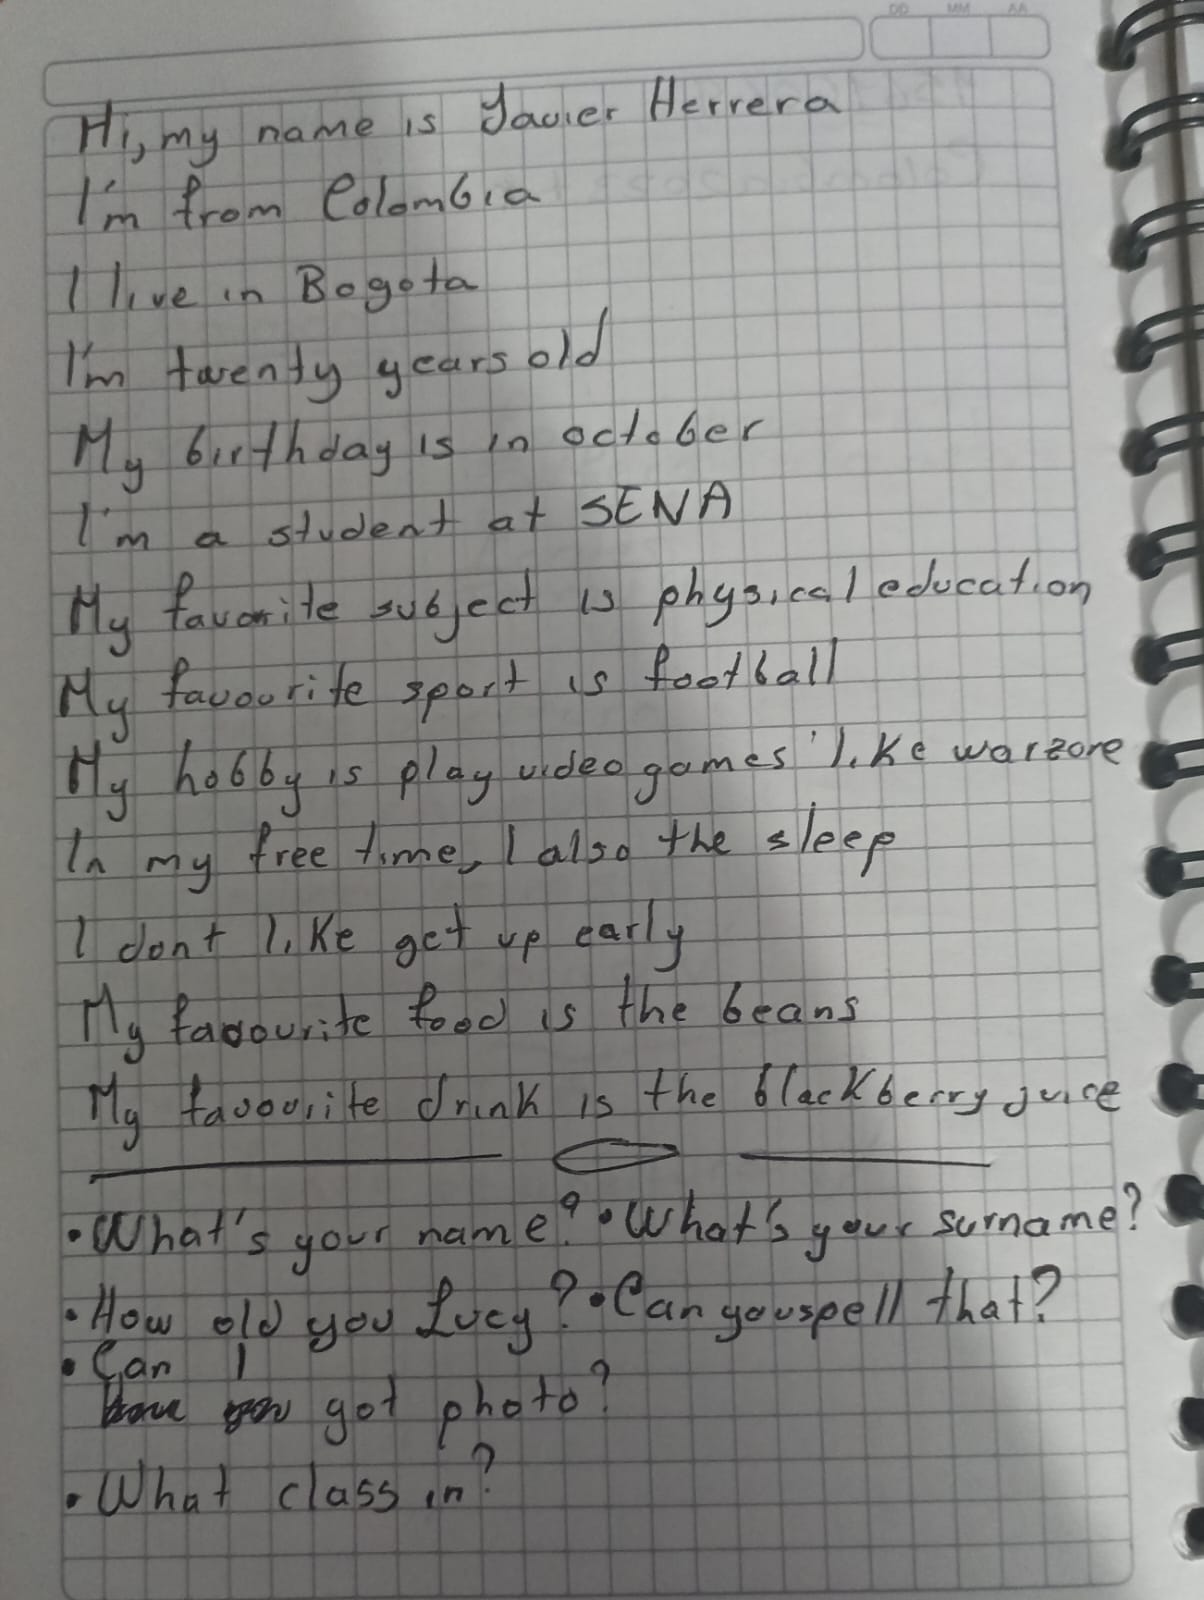 DD MM AA
Hi, my name is Javier Herrera
I'm from Colombia
I live in Bogota
I'm twenty years old
My birthday is in october
I'm a student at SENA
My favorite subject is physical education
My favoorite sport is football
My hobby is play videogames like warzone
In my free time, I also the sleep
I dont like get up early
My favourite food is the beans
My favoorite drink is the blackberry juice
• What's your name? • What's your surname?
• How old you Lucy? • Can you spell that?
• Can I
got photo?
• What class in?